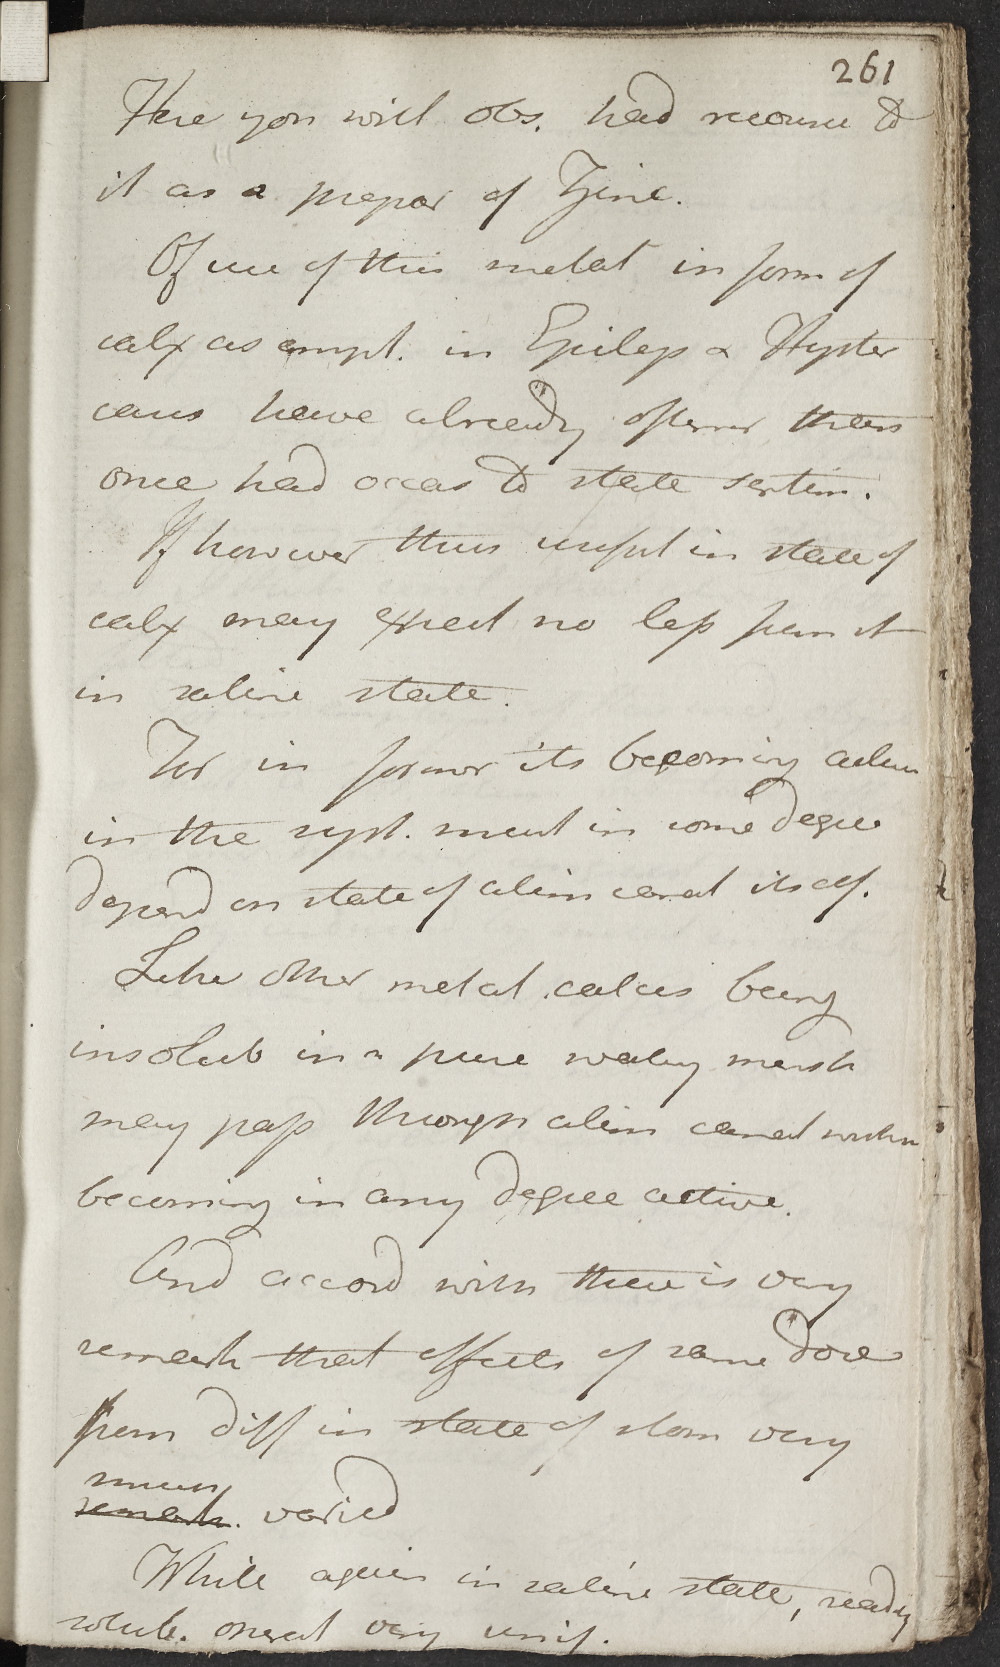 261
Here you will obs. had recourse to
it as a prepar of Zinc.
Of use of this metal in form of
calx as empl. in Epileps & Hyster
caus have already oftener than
once had occas to state sentim.
If however thus useful in state of
calx may expect no less from it
in saline state.
For in former its becoming active
in the syst. must in some degree
depend on state of alim canal itself.
Like other metal. calces being
insolub in a pure watery menst
may pass through alim canal without
becoming in any degree active.
And accord with this is very
remark that effects of same dose
from diff in state of stom very
much
remark. varied
While again in saline state, readily
solub. operat very unif.